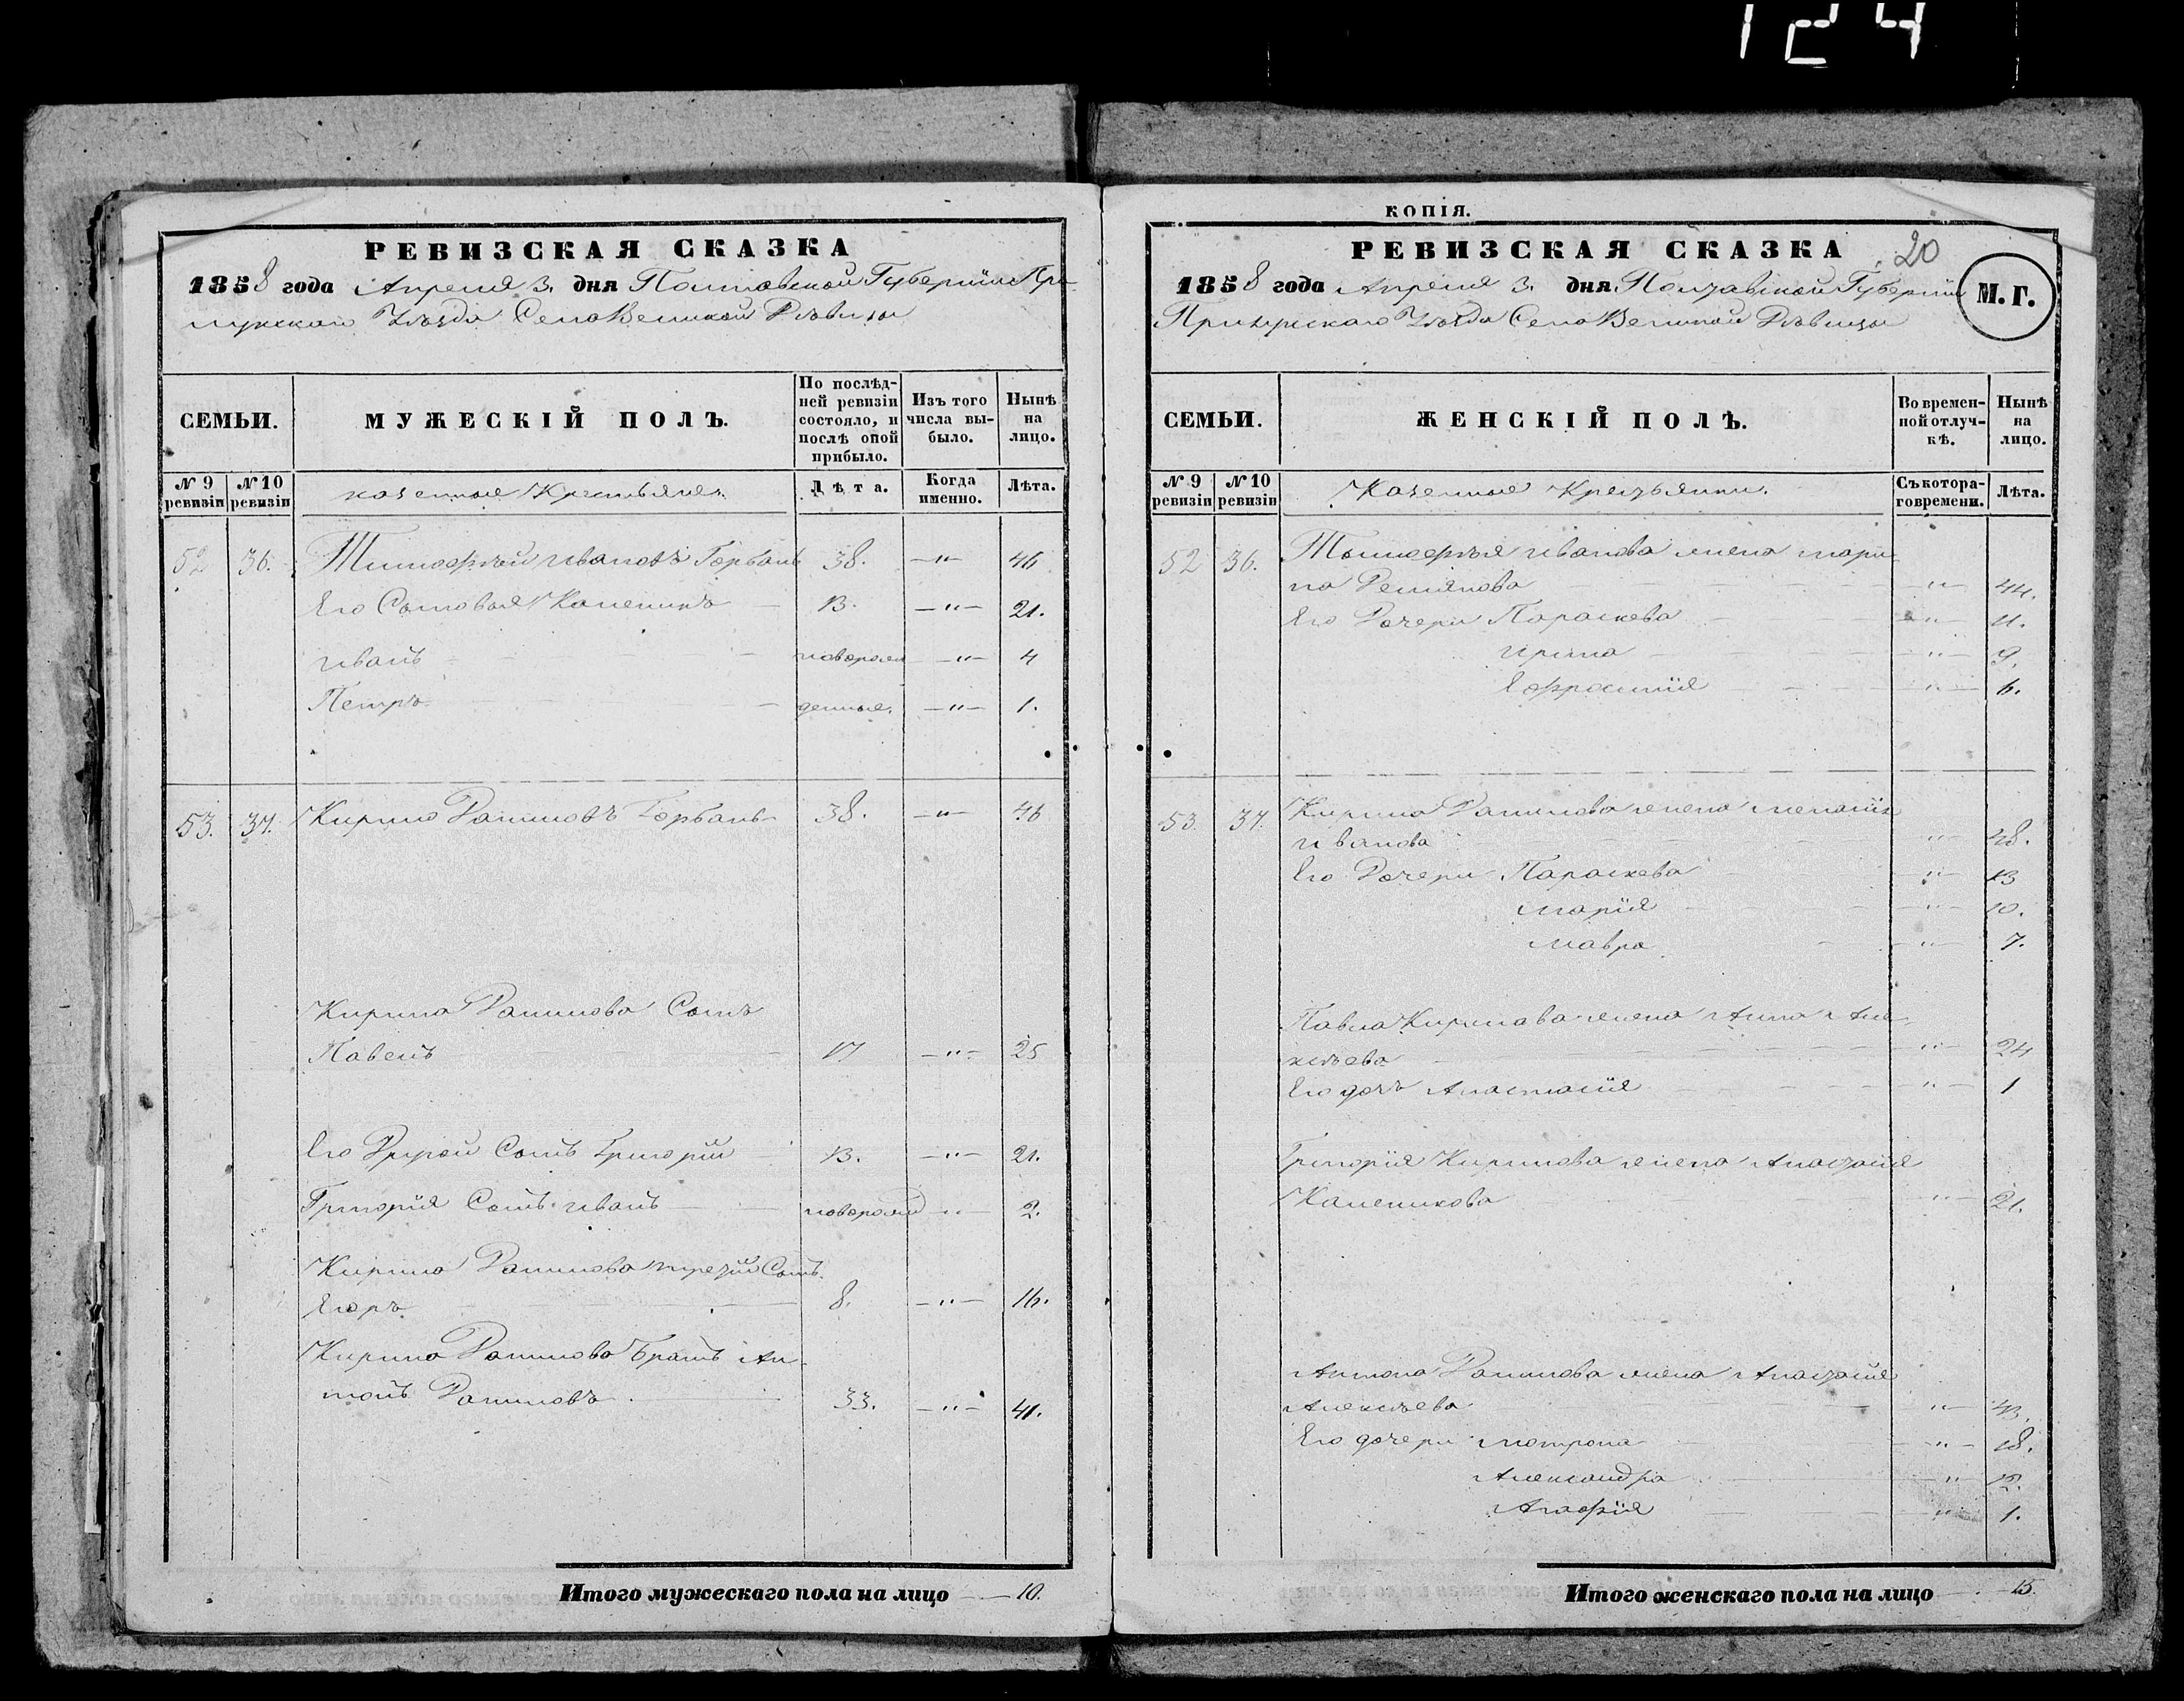 124
РЕВИЗСКАЯ СКАЗКА
1858 года Апреля 3. дня Полтавской Губернии При-
лукскаго Уѣзда Села Великой Дѣвицы
СЕМЬИ.
МУЖЕСКІЙ ПОЛЪ.
По послѣд-
ней ревизіи
состояло, и
послѣ оной
прибыло.
Изъ того
числа вы-
было.
Нынѣ
на
лицо.
№ 9
ревизіи
№ 10
ревизіи
казенные Крестьяне.
Лѣта.
Когда
именно.
Лѣта.
52 36. Тимофѣй Ивановъ Горбань 38. —"— 46
Его Сыновья Каленикъ — 13. —"— 21.
Иванъ — новорож —"— 4
Петръ — денные. —"— 1.
53. 37. Кирило Даниловъ Горбань 38. —"— 46
Кирила Данилова Сынъ
Павелъ — 17 —"— 25
Его Другой Сынъ Григорій 13. —"— 21.
Григорія Сынъ Иванъ — новорожд —"— 2.
Кирила Данилова третій Сынъ
Егоръ — 8. —"— 16.
Кирила Данилова Братъ Ан-
тонъ Даниловъ — 33. —"— 41.
Итого мужескаго пола на лицо — 10.
КОПІЯ.
РЕВИЗСКАЯ СКАЗКА
20
1858 года Апреля 3. дня Полтавской Губерніи
М. Г.
Прилукскаго Уѣзда Села Великой Дѣвицы
СЕМЬИ.
ЖЕНСКІЙ ПОЛЪ.
Во времен-
ной отлуч-
кѣ.
Нынѣ
на
лицо.
№ 9
ревизіи
№ 10
ревизіи
Казенные Крестьянки.
Съ котора-
го времени.
Лѣта.
52 36. Тимофѣя Иванова жена Мари-
на Демянова — " — 44.
Его Дочери Параскева — " — 11.
Ирина — " — 9.
Ефросинія — " — 6.
53 37. Кирила Данилова жена Меланія
Иванова — " — 48.
Его Дочери Параскева — " — 13
Марія — " — 10.
Мавра — " — 7.
Павла Кирилова жена Анна Але-
ксѣева — " — 24
Его дочь Анастасія — " — 1
Григорія Кирилова жена Анастасія
Каленикова — " — 21.
Антона Данилова жена Анастасія
Алексѣева — " — 43.
Его дочери Мотрона — " — 18.
Александра — " — 12.
Агафія — " — 1.
Итого женскаго пола на лицо — 15.